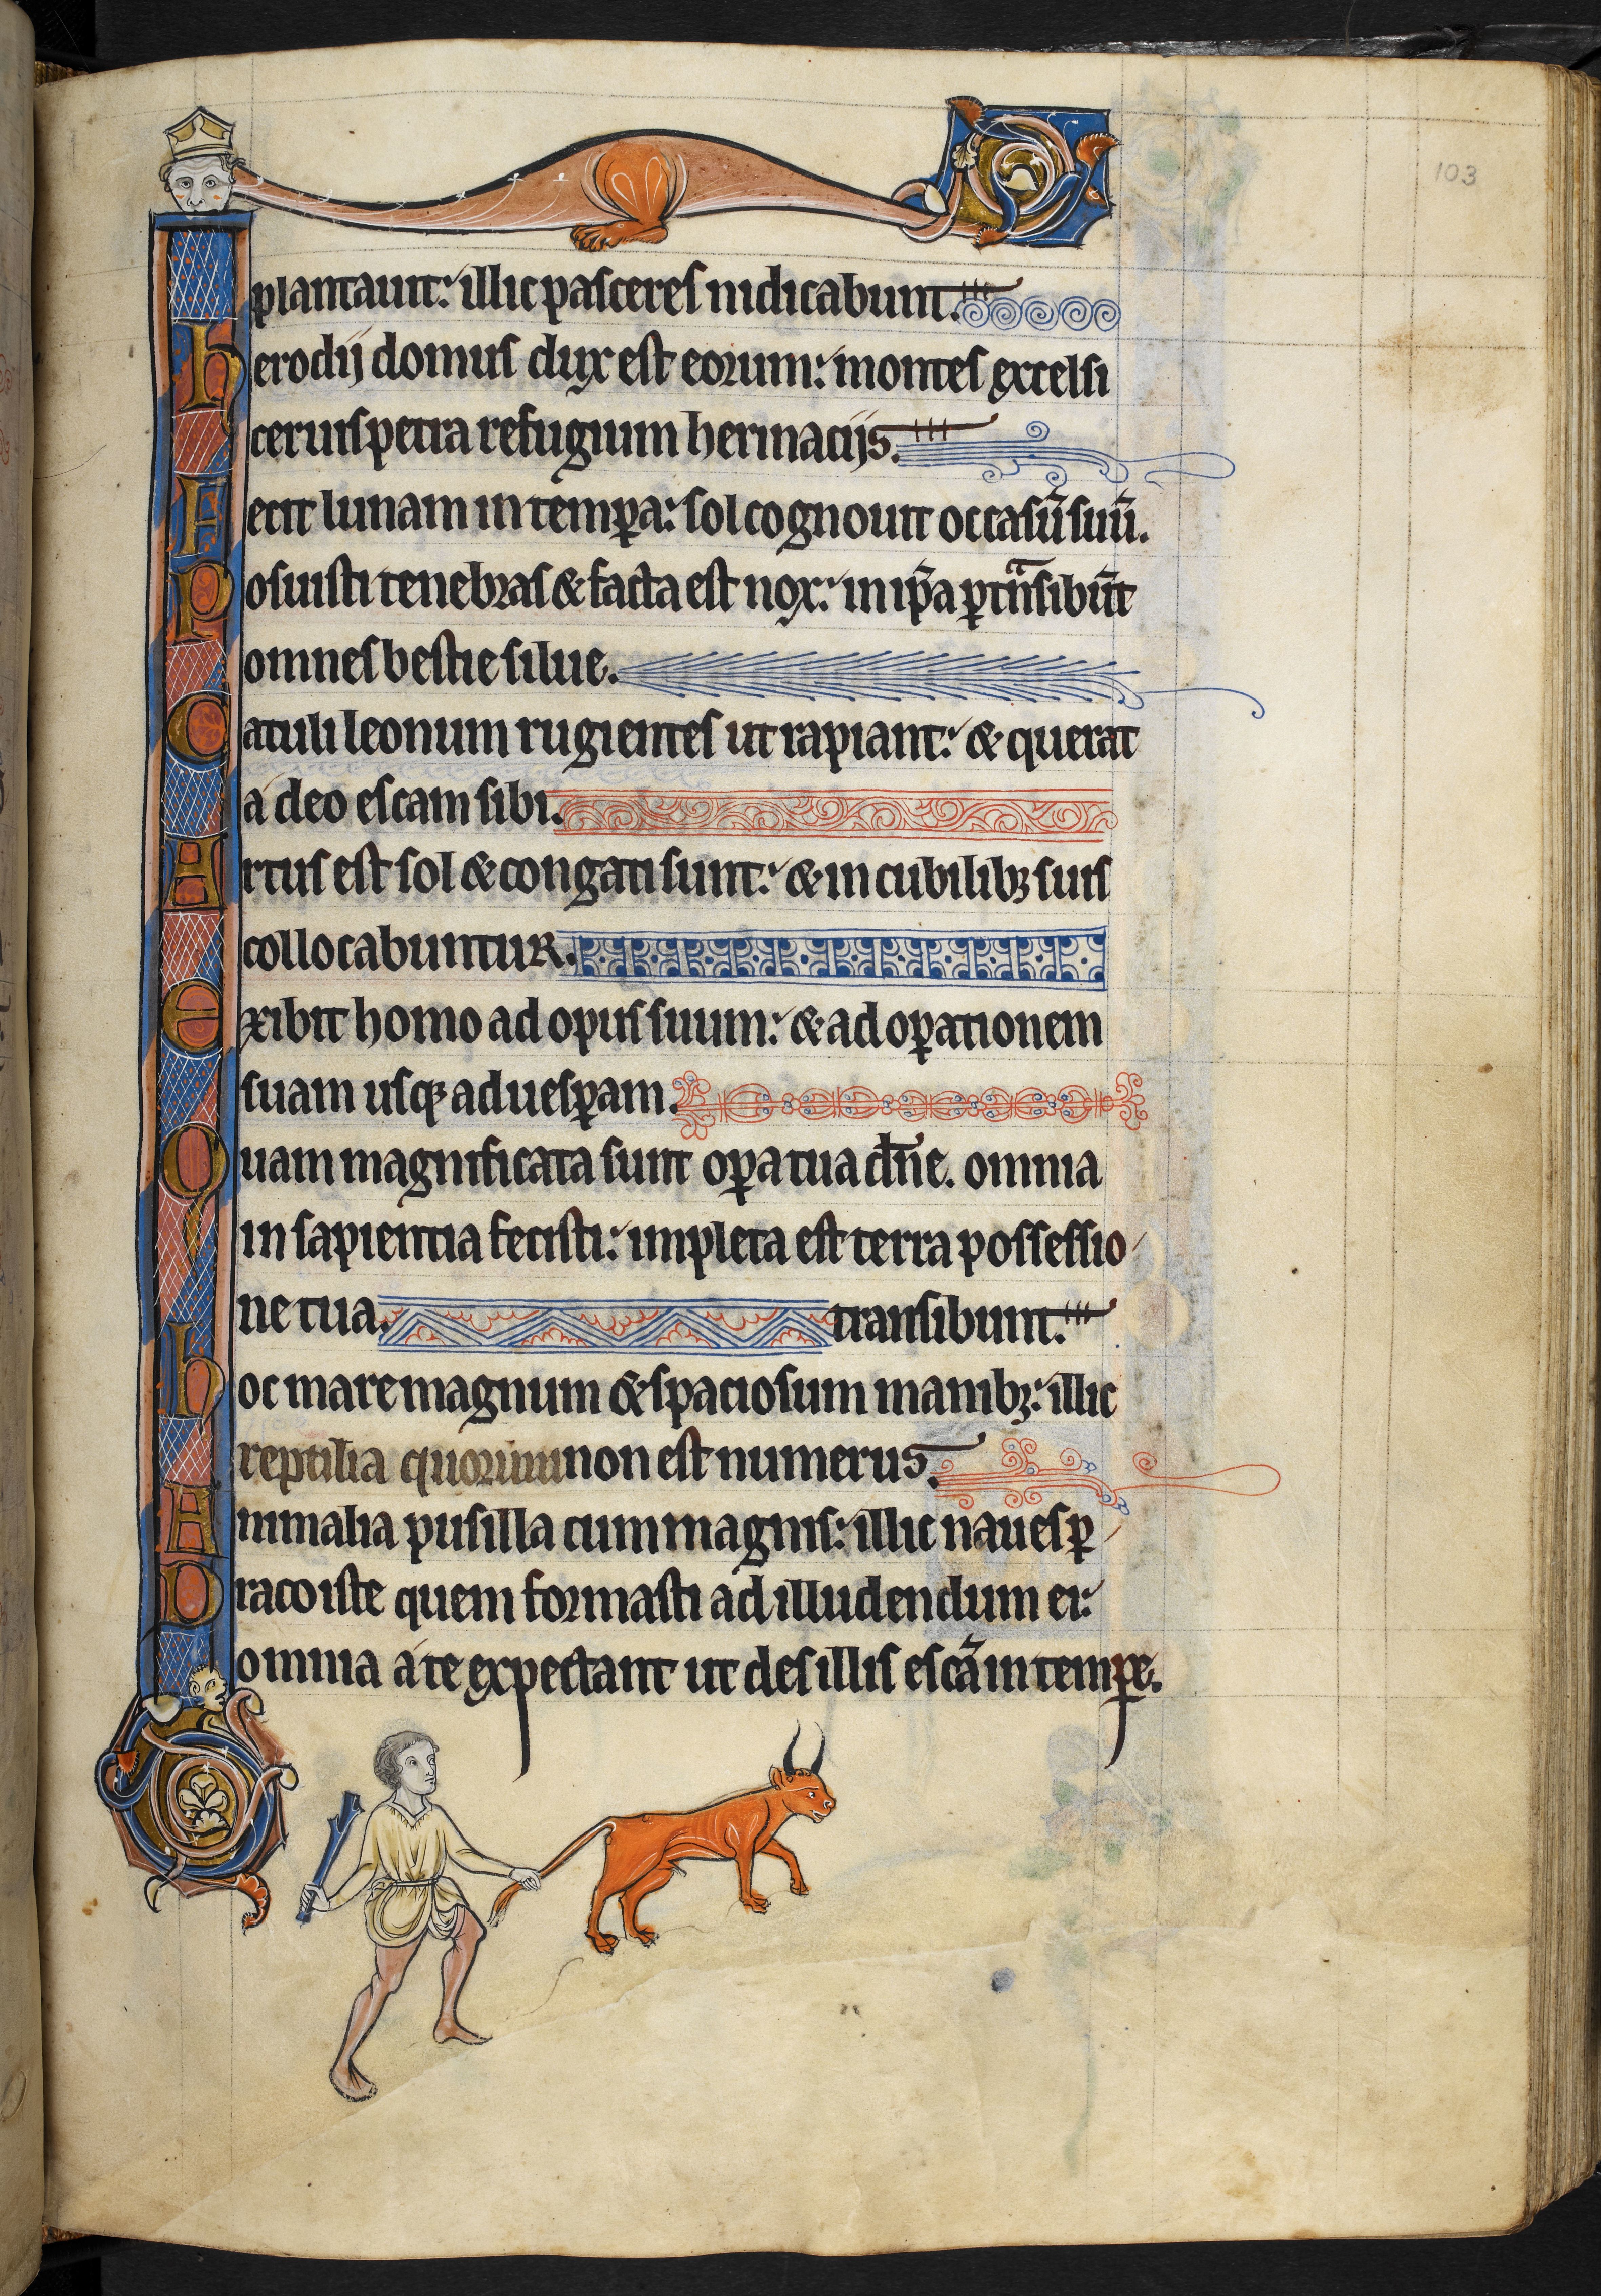 103
plantauit: illic passeres nidicabunt.
herodij domus dux est eorum: montes excelsi
ceruis petra refugium hermacijs.
Fecit lunam in temp̲a: sol cognouit occasū suū.
Posuisti tenebras & facta est nox: in ip̄a p̲tn̄sibūt
omnes bestie silue.
Catuli leonum rugientes ut rapiant: & querat
a deo escam sibi.
Artus est sol & congati sunt: & in cubilibꝫ suis
collocabuntur.
exibit homo ad opus suum: & ad oꝑationem
suam usqꝫ ad uesꝑam.
Quam magnificata sunt oꝑa tua dn̄e. omnia
in sapientia fecisti: impleta est terra possessio
ne tua. transibunt.
hoc mare magnum & spaciosum manibꝫ: illic
reptilia quorum non est numerus.
Animalia pusilla cum magnis: illic naues ꝑ
Draco iste quem formasti ad illudendum ei:
omnia a te expectant ut des illis escā in temꝑe.